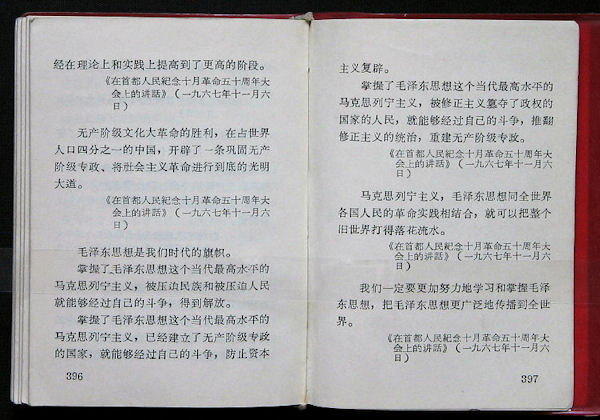 经在理论上和实践上提高到了更高的阶段。
《在首都人民紀念十月革命五十周年大
会上的讲話》（一九六七年十一月六
日）
无产阶级文化大革命的胜利，在占世界
人口四分之一的中国，开辟了一条巩固无产
阶级专政、将社会主义革命进行到底的光明
大道。
《在首都人民紀念十月革命五十周年大
会上的讲話》（一九六七年十一月六
日）
毛泽东思想是我们时代的旗帜。
掌握了毛泽东思想这个当代最高水平的
马克思列宁主义，被压迫民族和被压迫人民
就能够经过自己的斗争，得到解放。
掌握了毛泽东思想这个当代最高水平的
马克思列宁主义，已经建立了无产阶级专政
的国家，就能够经过自己的斗争，防止资本
396
主义复辟。
掌握了毛泽东思想这个当代最高水平的
马克思列宁主义，被修正主义篡夺了政权的
国家的人民，就能够经过自己的斗争，推翻
修正主义的统治，重建无产阶级专政。
《在首都人民紀念十月革命五十周年大
会上的讲話》（一九六七年十一月六
日）
马克思列宁主义，毛泽东思想同全世界
各国人民的革命实践相结合，就可以把整个
旧世界打得落花流水。
《在首都人民紀念十月革命五十周年大
会上的讲話》（一九六七年十一月六
日）
我们一定要更加努力地学习和掌握毛泽
东思想，把毛泽东思想更广泛地传播到全世
界。
《在首都人民紀念十月革命五十周年大
会上的讲話》（一九六七年十一月六
日）
397